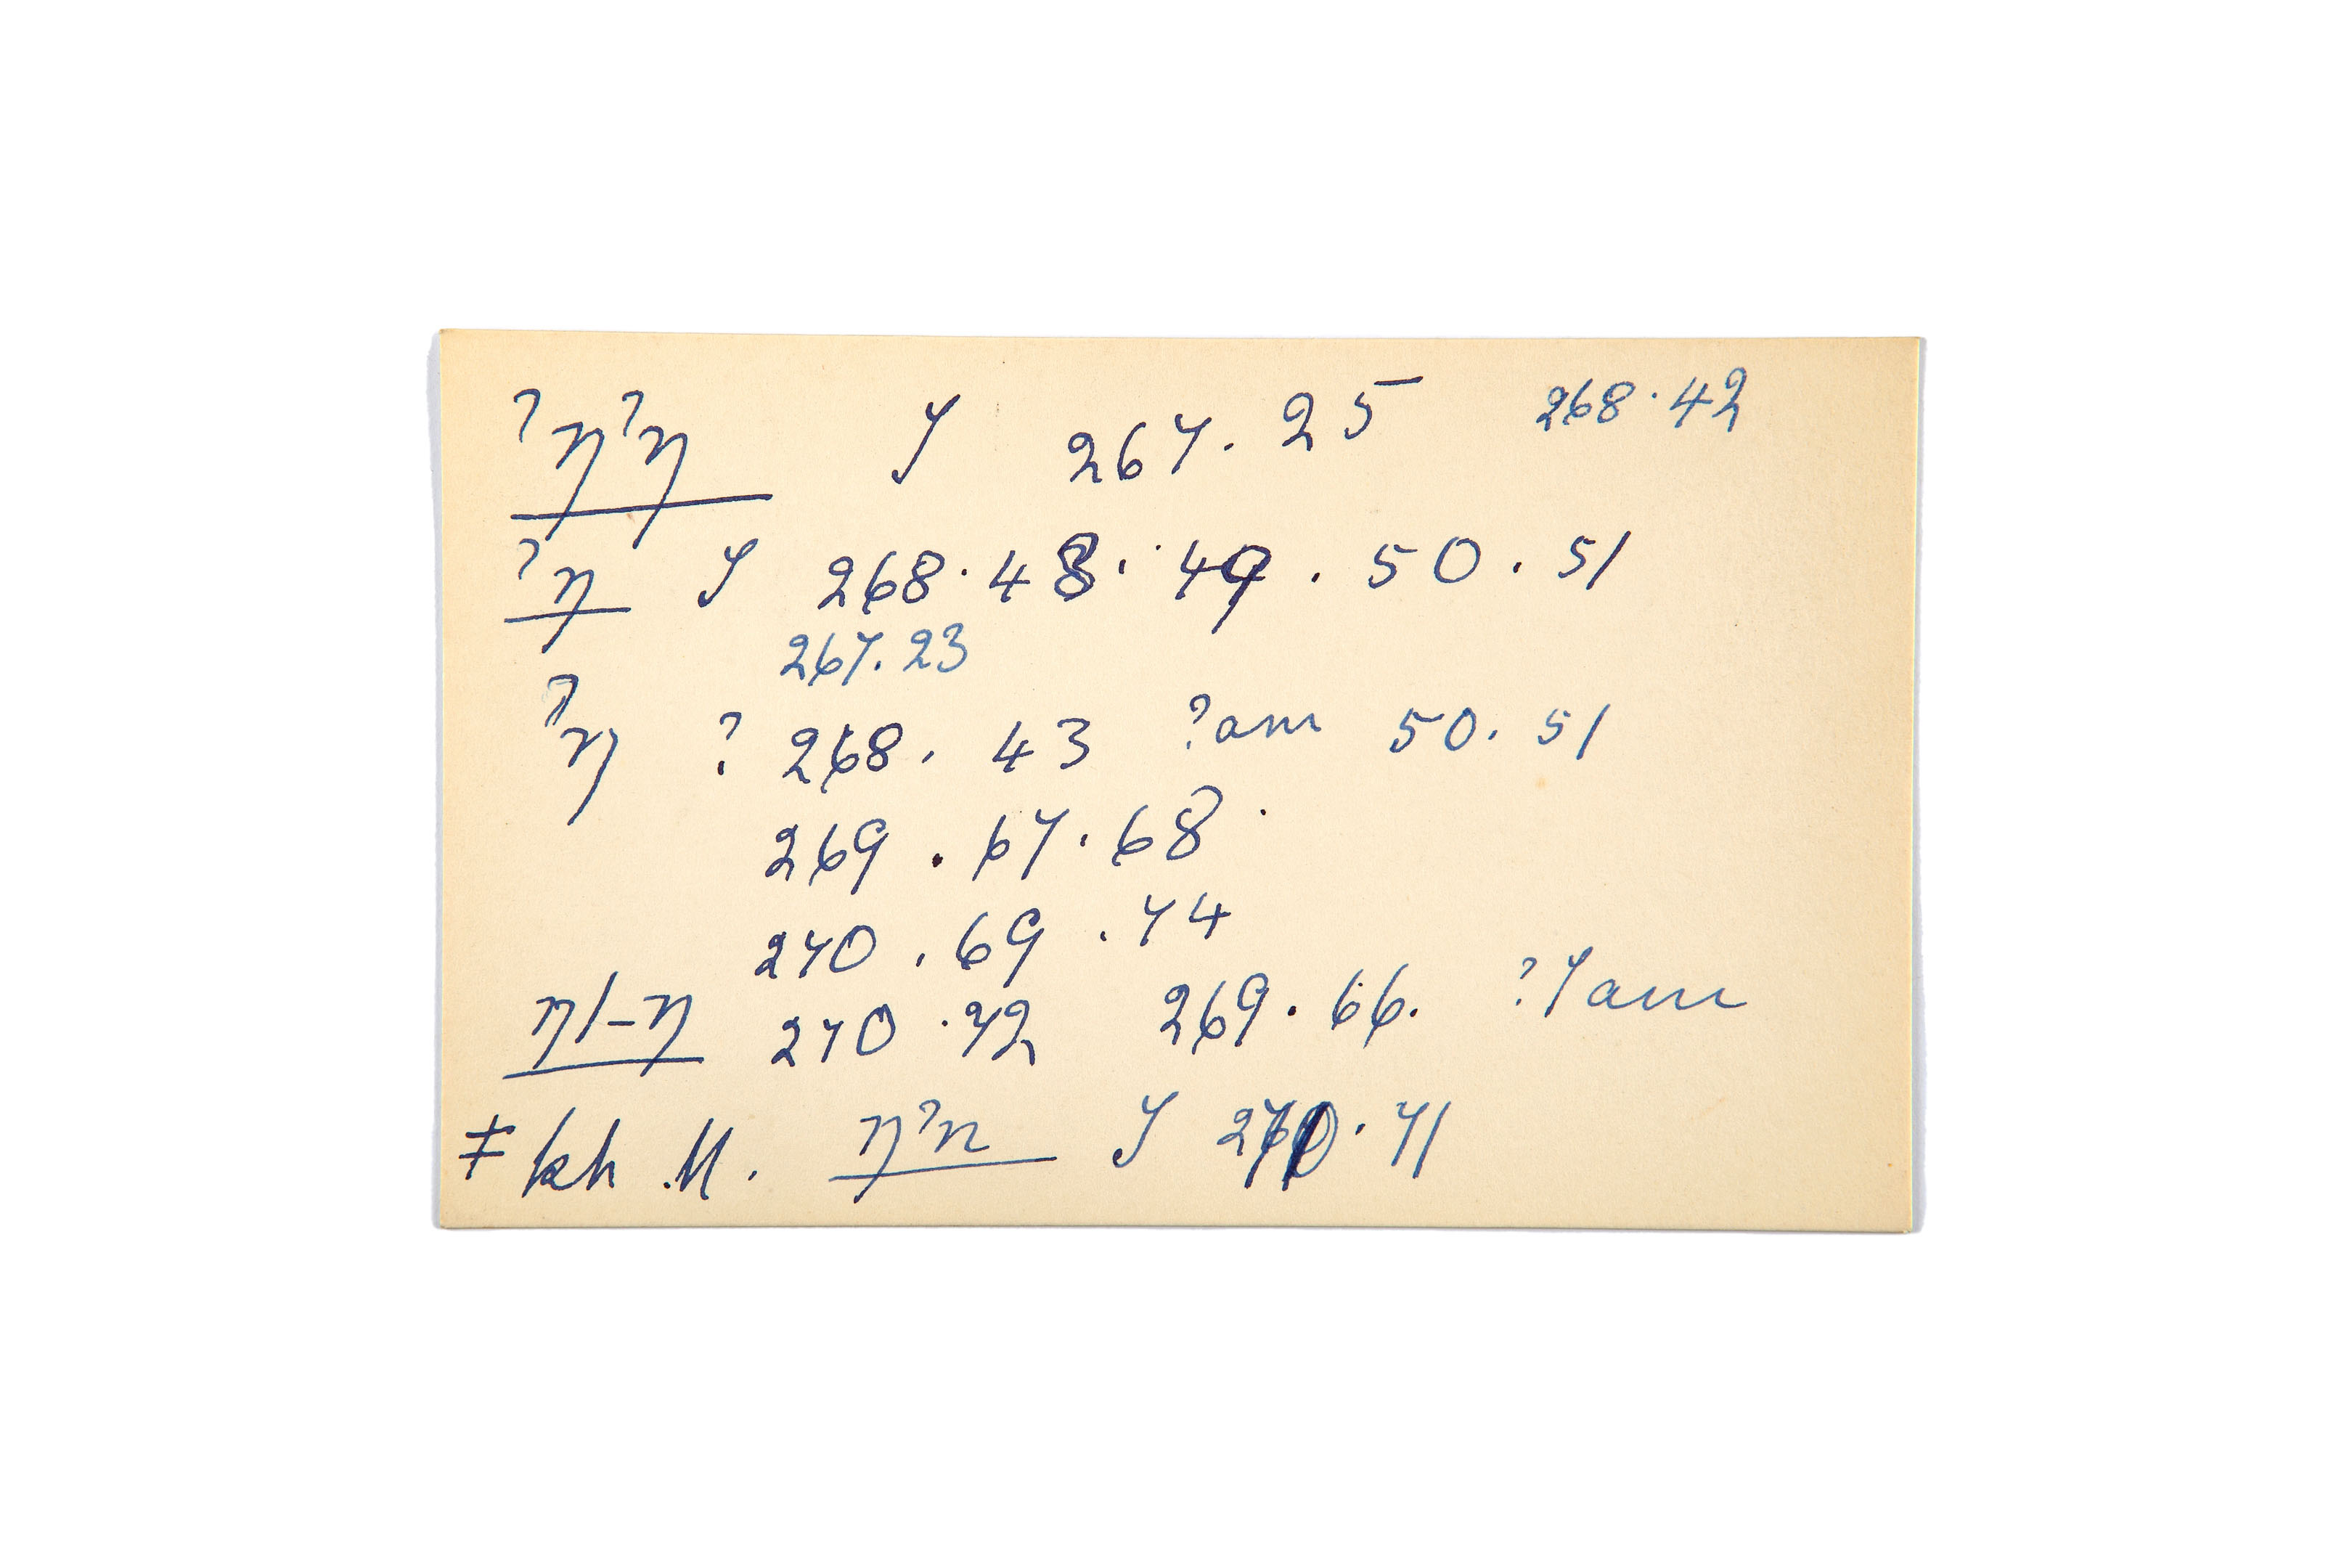 ˀŋˀŋ S 267. 25 268.42
ˀŋ S 268.48. 49. 50. 51
267.23
ˀŋ ? 268. 43 ?am 50. 51
269. 67. 68.
270. 69. 74
ŋ/-ŋ 270.72 269. 66. ? am
ǂkh M. ŋˀn S 270. 71